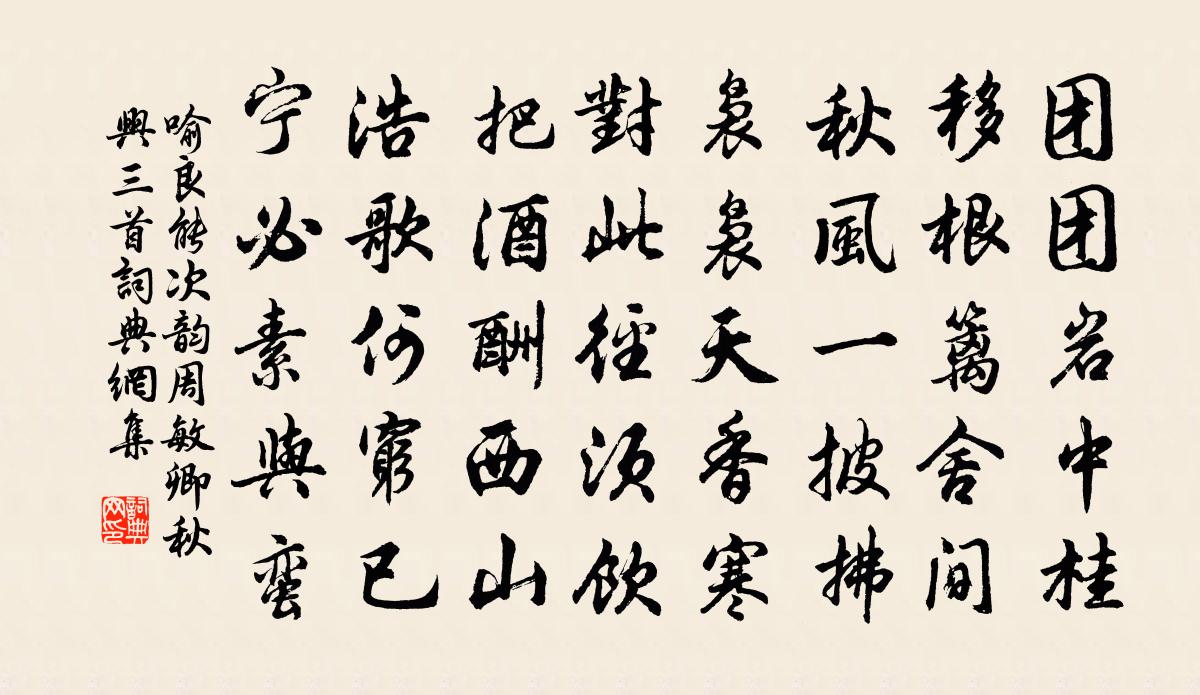 团团岩中桂
移根篱舍间
秋風一披拂
袅袅天香寒
對此径须饮
把酒酬西山
浩歌何穷已
宁必素與蛮
喻良能次韵周敏卿秋
興三首詞典網集
詞典网印